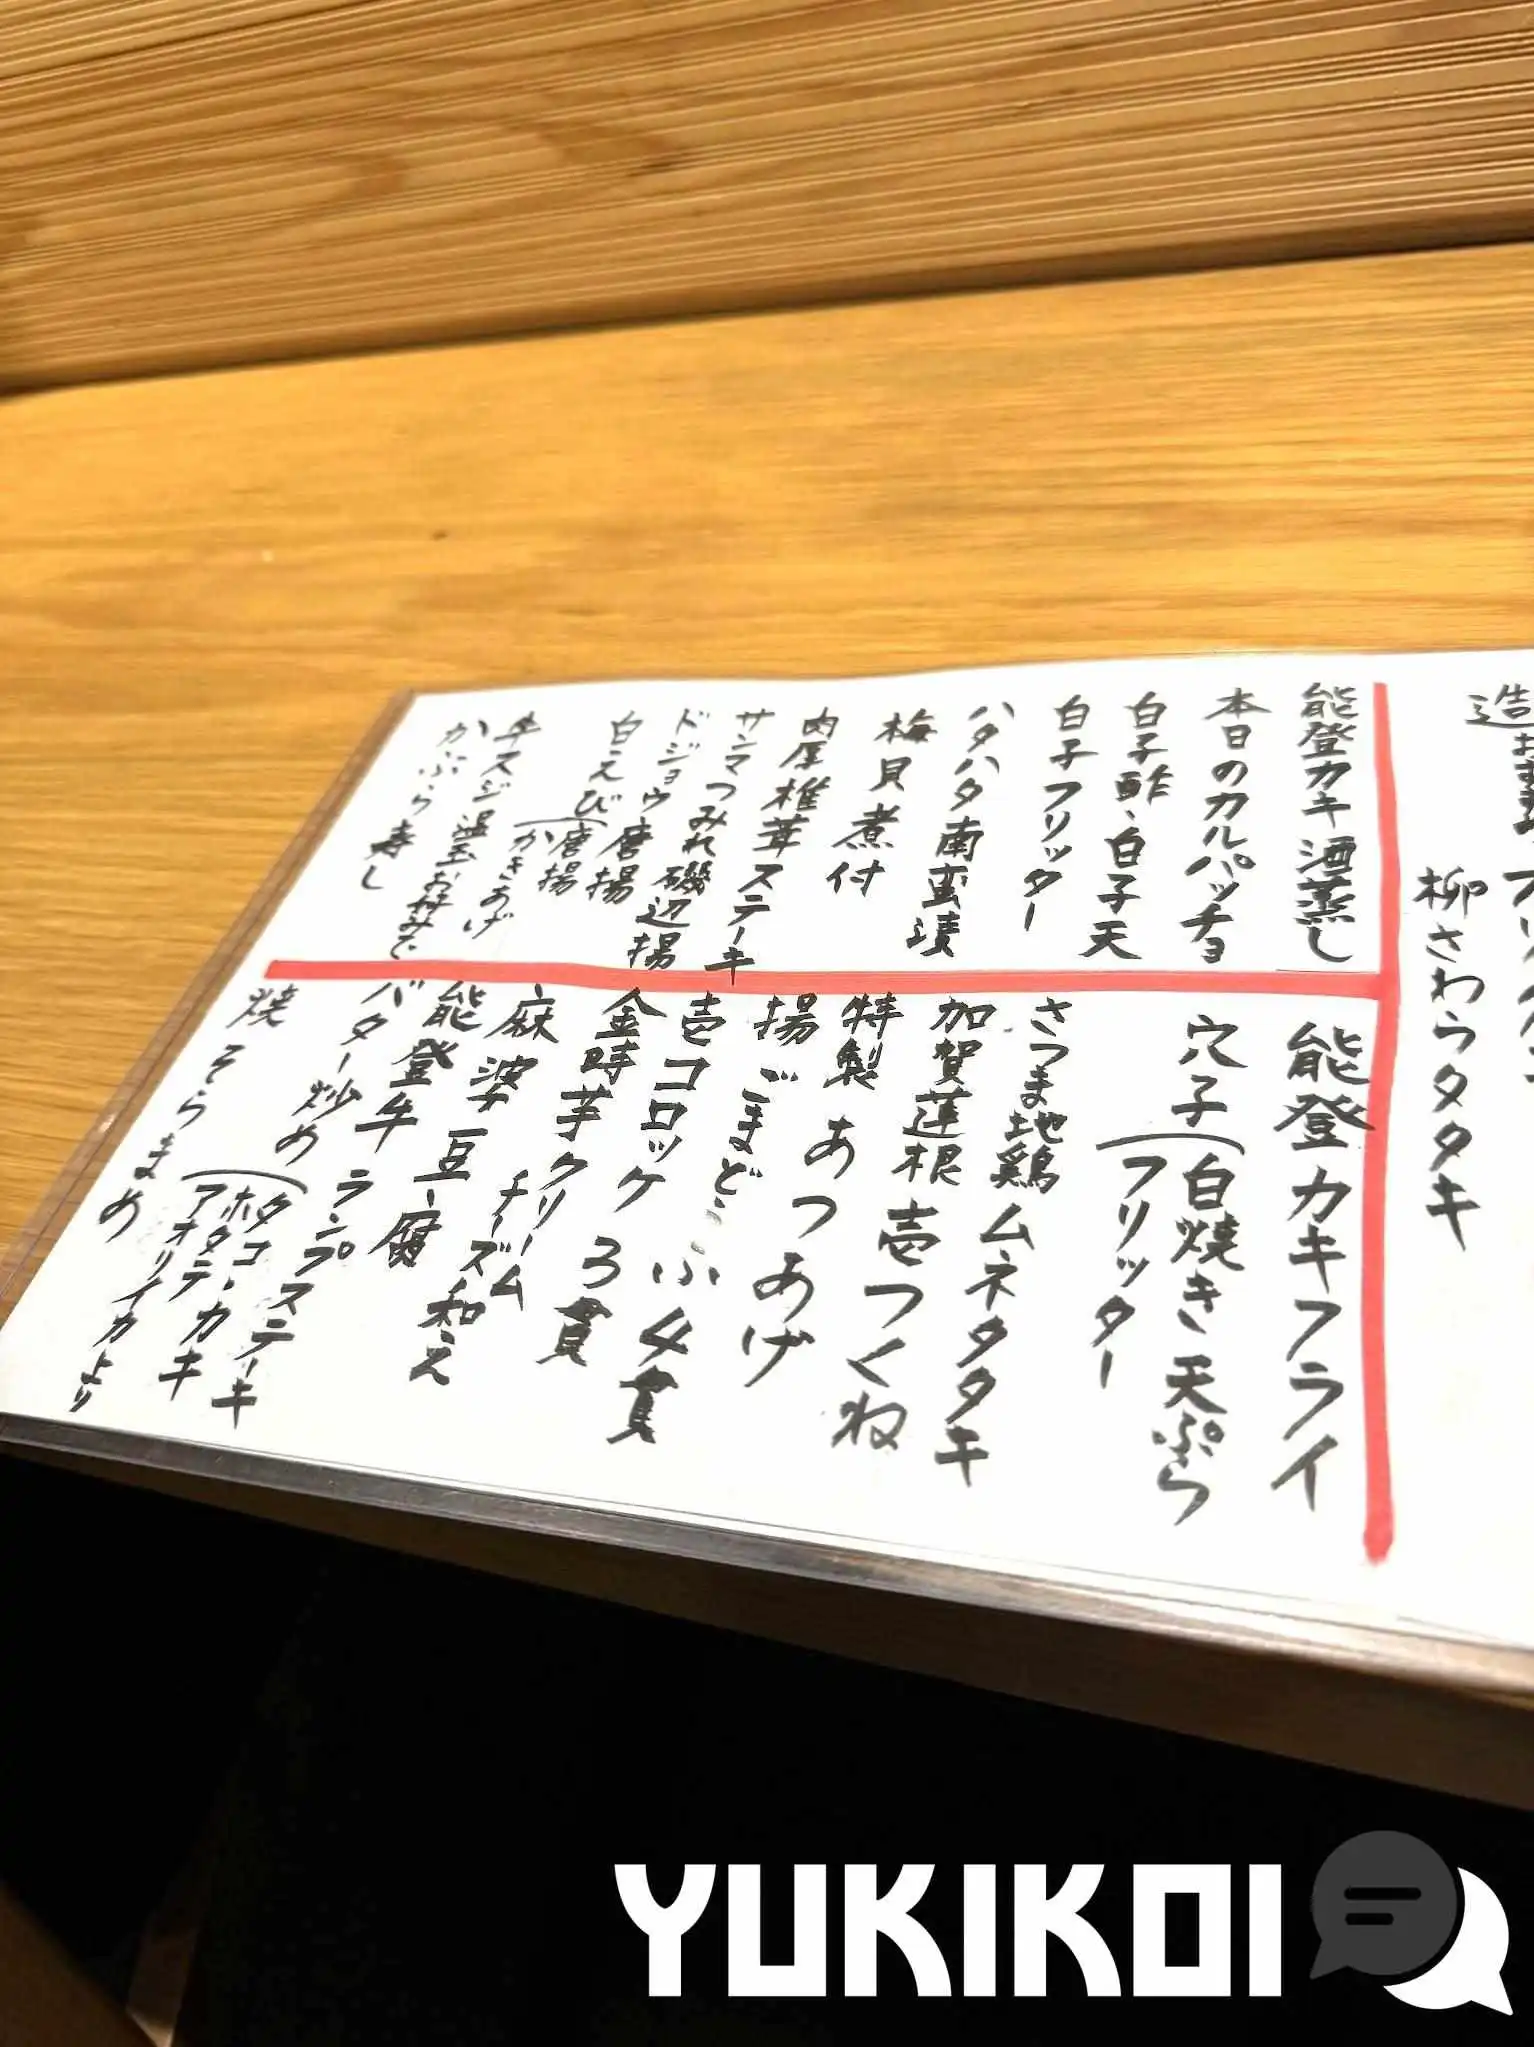 造
柳さわらタタキ
能登カキ酒蒸し
本日のカルパッチョ
白子酢、白子天
白子フリッター
ハタハタ南蛮漬
梅貝煮付
肉厚椎茸ステーキ
サンマつみれ磯辺揚
ドジョウ唐揚
白えび(唐揚
かきあげ
牛スジ温玉お好みで
かぶら寿し
能登カキフライ
穴子(白焼き 天ぷら
フリッター
さつま地鶏ムネタタキ
加賀蓮根 壱つくね
特製 あつあげ
揚ごまどうふ 4貫
壱コロッケ 3貫
金時芋クリーム
チーズ和え
麻婆豆腐
能登牛ランプステーキ
バター炒め(タコ・カキ
ホタテ
アオリイカより
焼 そらまめ
YUKIKOI